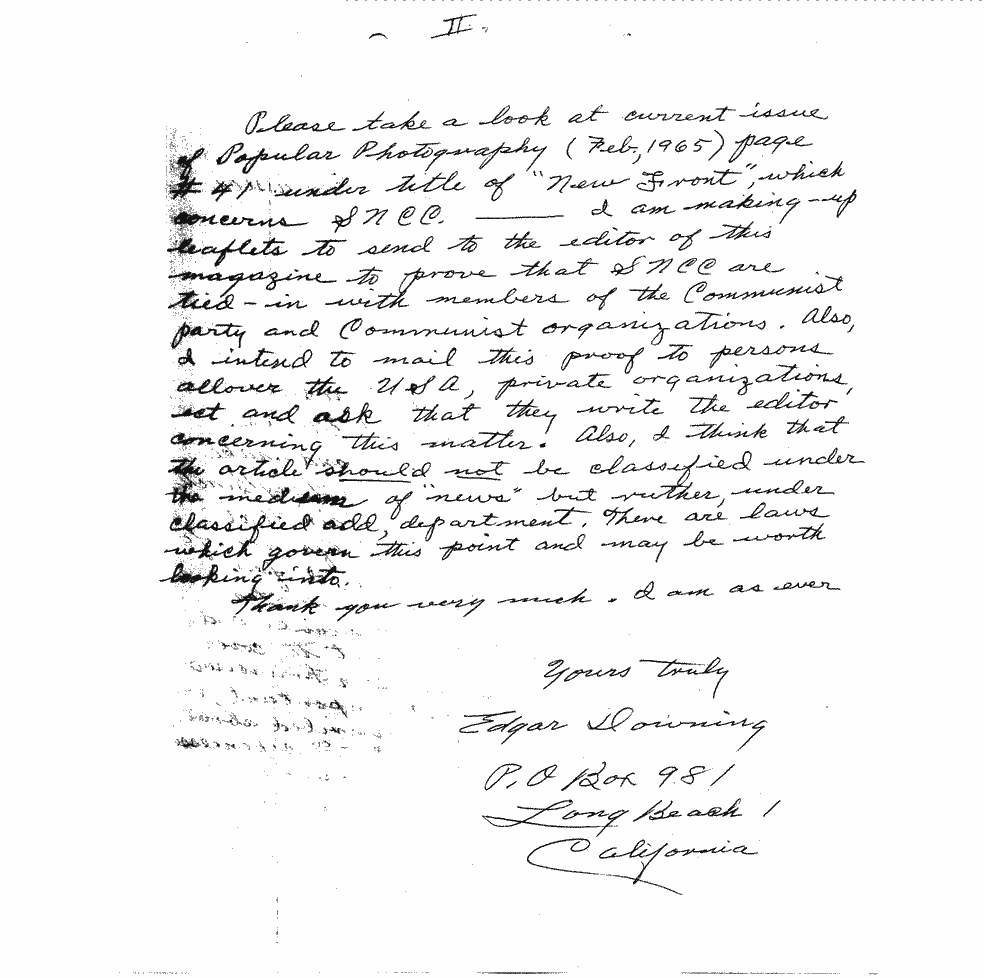 II.
Please take a look at current issue
of Popular Photography (Feb, 1965) page
# 41 under title of "New Front", which
concerns SNCC. ——— I am making-up
leaflets to send to the editor of this
magazine to prove that SNCC are
tied-in with members of the Communist
party and Communist organizations. Also,
I intend to mail this proof to persons
allover the USA, private organizations,
ect and ask that they write the editor
concerning this matter. Also, I think that
the article should not be classified under
the medium of "news" but ruther, under
classified add, department. There are laws
which govern this point and may be worth
looking into.
Thank you very much. I am as ever
Yours truly
Edgar Downing
P.O Box 981
Long Beach 1
California